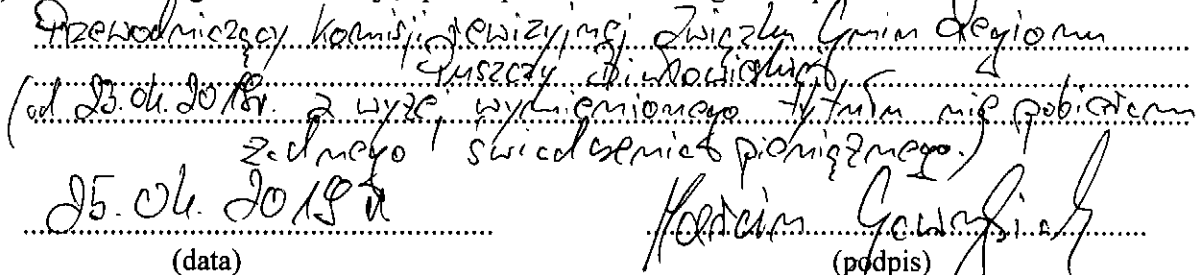 Przewodniczący Komisji Rewizyjnej Związku Gmin Regionu
Puszczy Białowieskiej
(od 23.04.2018r. z wyżej wymienionego tytułu nie pobieram
żadnego świadczenia pieniężnego.)
25.04.2019 r
Marcin
(data) (podpis)